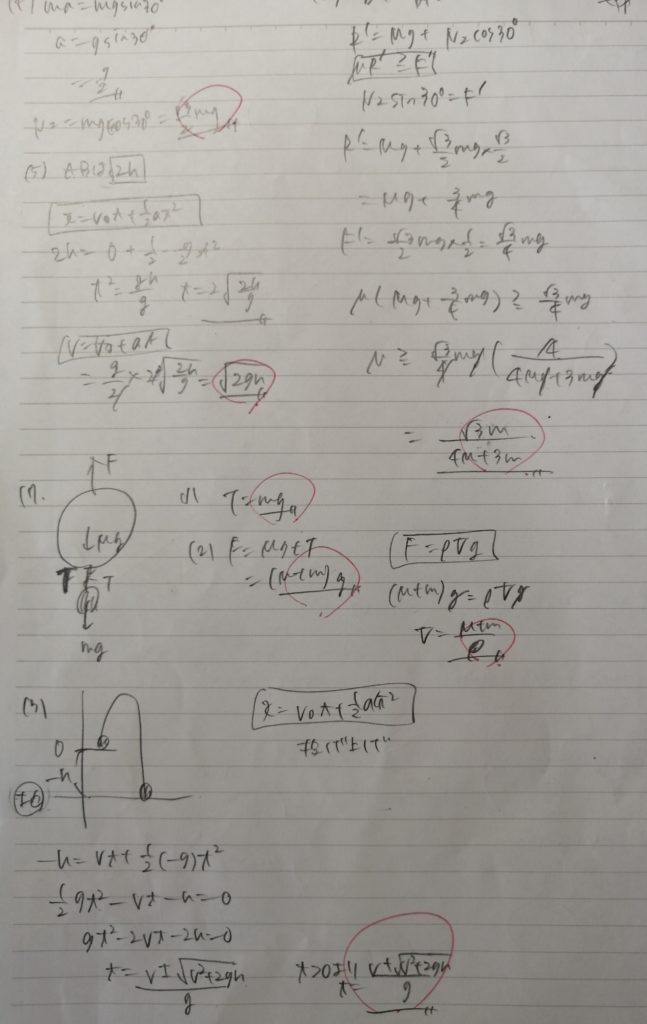 (4) ma = mgsin30°
a = gsin30°
= g/2
N₂ = mgcos30° = √3/2 mg
(5) ABは2h
x = v₀t + 1/2 at²
2h = 0 + 1/2 · g/2 t²
t² = 8h/g t = 2√(2h/g)
V = V₀ + at
= g/2 × 2√(2h/g) = √2gh
R' = Mg + N₂cos30°
μR' ≧ F'
N₂sin30° = F'
R' = Mg + √3/2 mg × √3/2
= Mg + 3/4 mg
F' = √3/2 mg × 1/2 = √3/4 mg
μ(Mg + 3/4 mg) ≧ √3/4 mg
μ ≧ √3/4 mg (4/(4Mg + 3mg))
= √3m/(4M + 3m)
17.
F
Mg
T T
mg
(1) T = mg
(2) F = Mg + T
= (M+m)g
F = ρVg
(M+m)g = ρVg
V = (M+m)/ρ
(3)
0
-h
x = v₀t + 1/2 at²
投げ上げ
-h = vt + 1/2 (-g)t²
1/2 gt² - vt - h = 0
gt² - 2vt - 2h = 0
t = (v ± √(v² + 2gh))/g
t>0より t = (v + √(v² + 2gh))/g